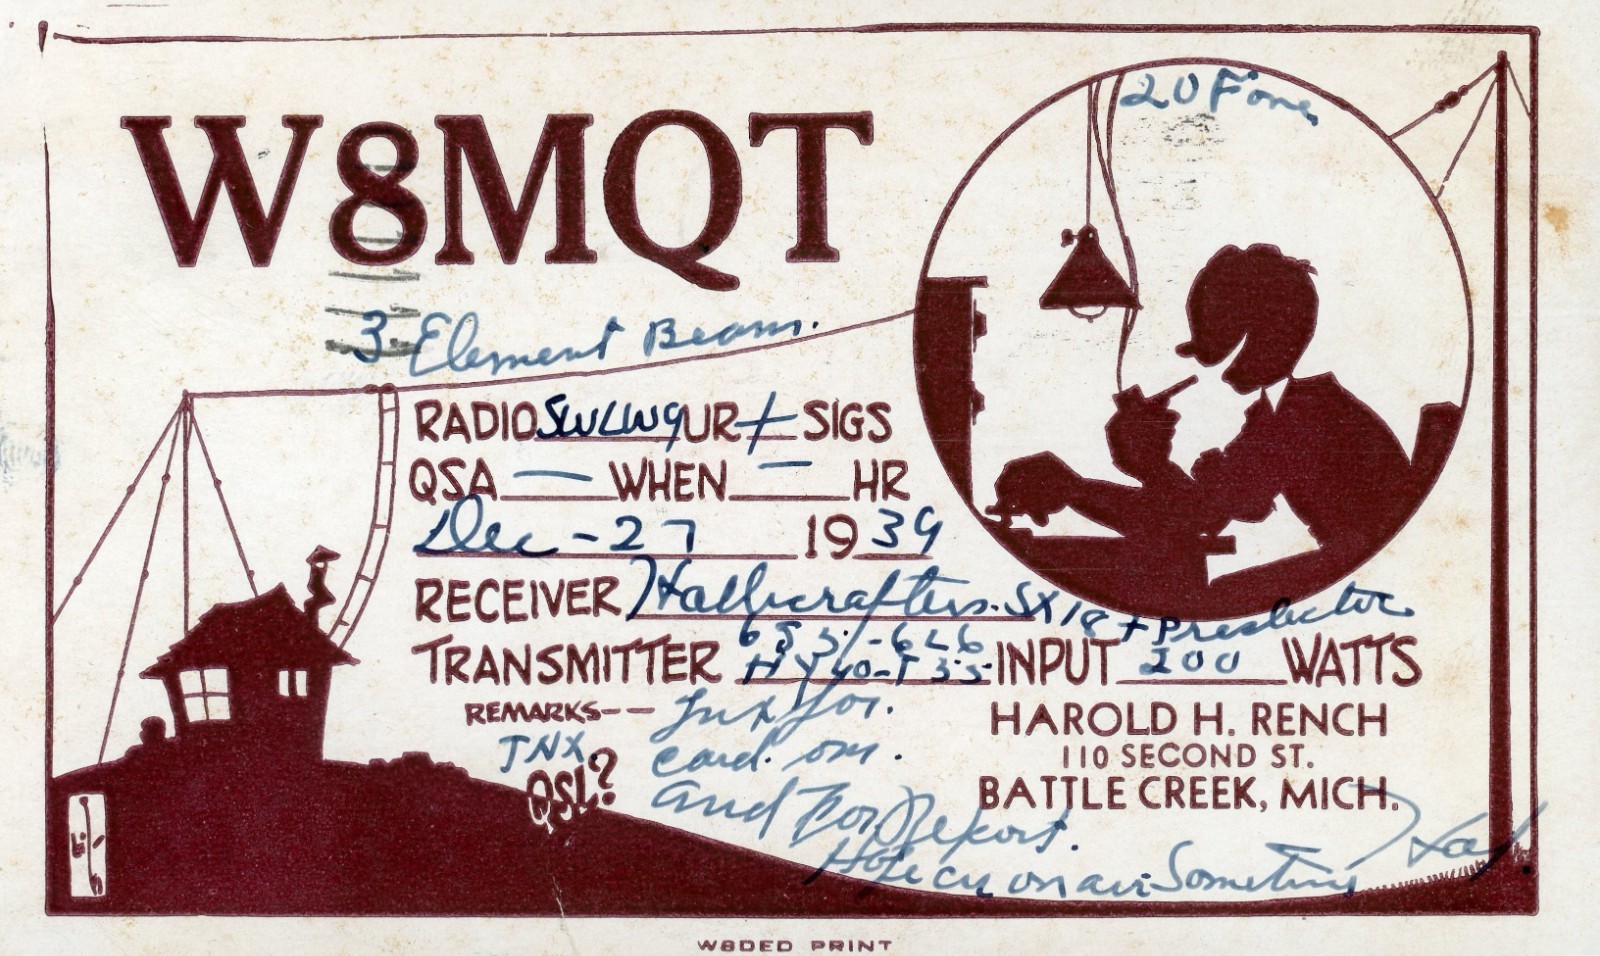 20 Fone
W8MQT
3 Element Beam.
RADIO SWLW9 UR + SIGS
QSA — WHEN — HR
Dec - 27 1939
RECEIVER Hallicrafters. SX18 + Preselector
TRANSMITTER 6J5 - 6L6 HY40-T35 INPUT 200 WATTS
REMARKS-- Tnx for.
card. om.
and for Report.
Hope cu on air Sometime
TNX
QSL?
HAROLD H. RENCH
110 SECOND ST.
BATTLE CREEK, MICH.
Hal
W8DED PRINT